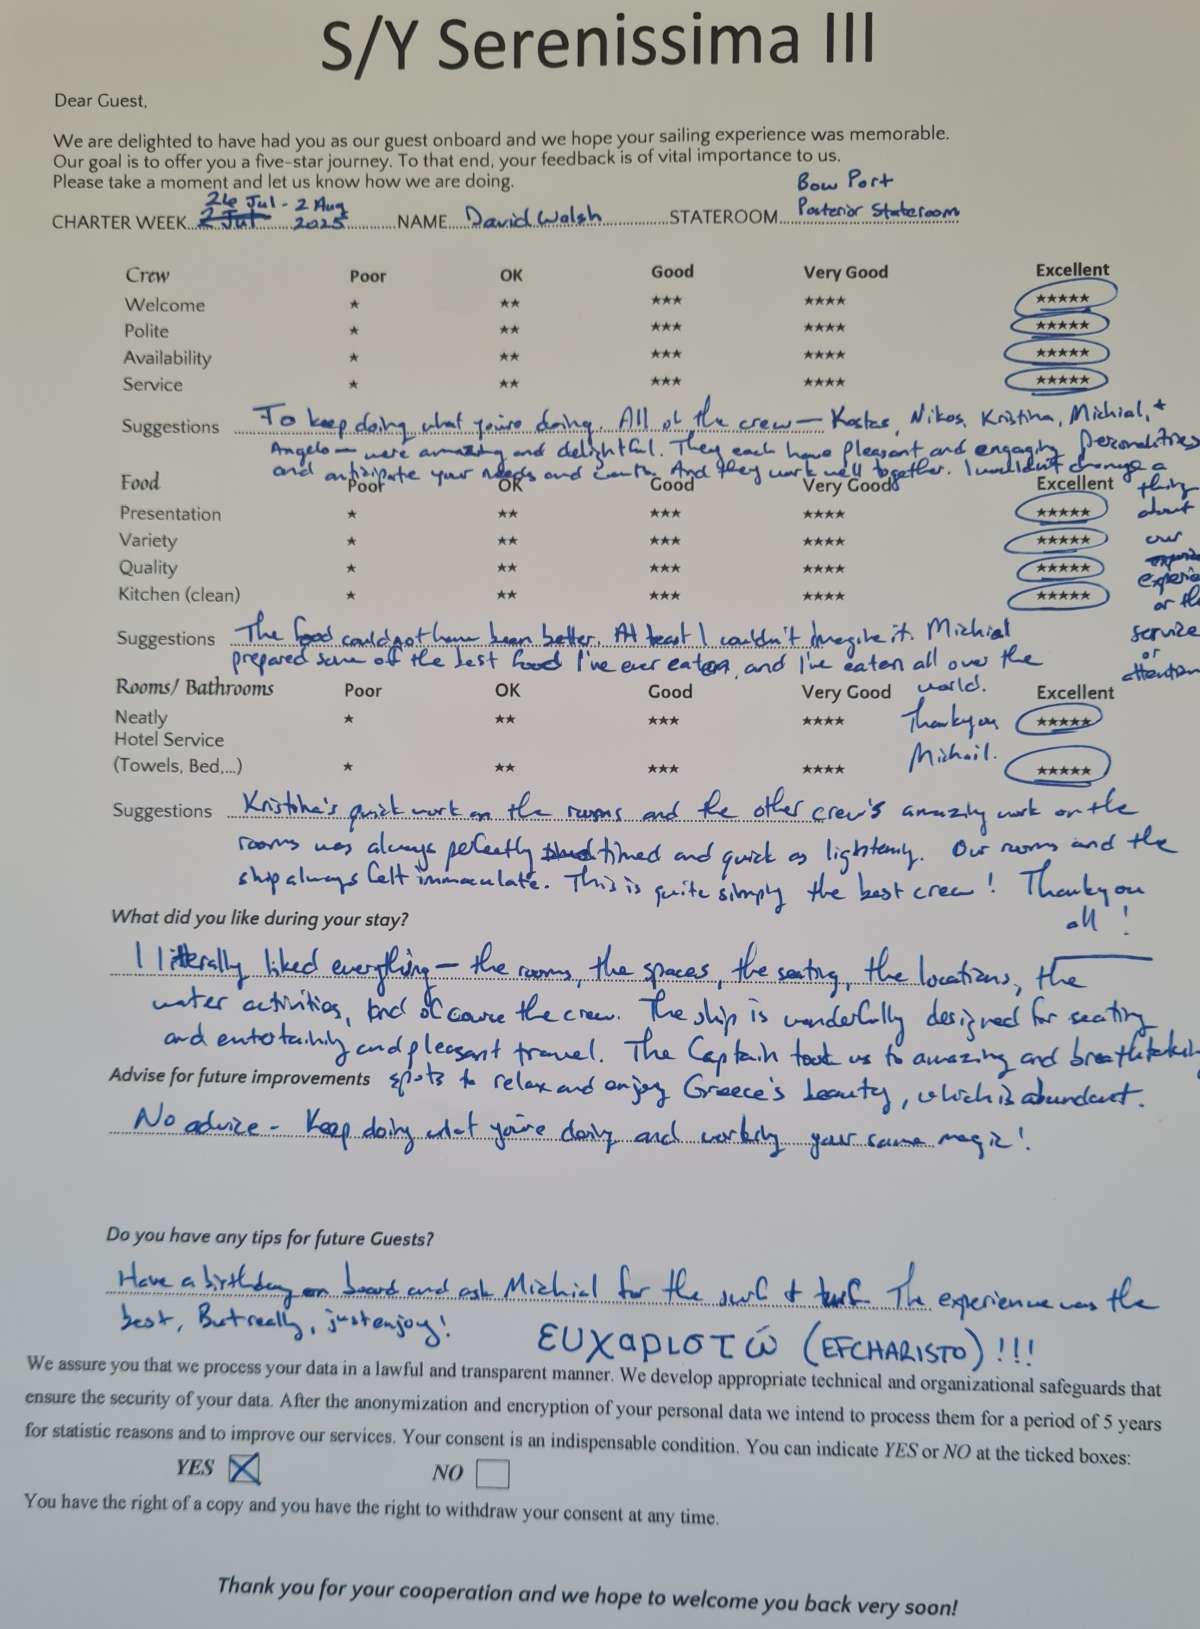 S/Y Serenissima III
Dear Guest,
We are delighted to have had you as our guest onboard and we hope your sailing experience was memorable.
Our goal is to offer you a five-star journey. To that end, your feedback is of vital importance to us.
Please take a moment and let us know how we are doing.
CHARTER WEEK 26 Jul - 2 Aug 2025 NAME David Walsh STATEROOM Bow Port Posterior Stateroom
Crew Poor OK Good Very Good Excellent
Welcome ★ ★★ ★★★ ★★★★ ★★★★★
Polite ★ ★★ ★★★ ★★★★ ★★★★★
Availability ★ ★★ ★★★ ★★★★ ★★★★★
Service ★ ★★ ★★★ ★★★★ ★★★★★
Suggestions To keep doing what you're doing. All of the crew — Kostas, Nikos, Kristina, Michial, +
Angelo — were amazing and delightful. They each have pleasant and engaging personalities
and anticipate your needs and wants. And they work well together. I wouldn't change a
thing
about
our
experie
or the
service
or
attention
Food Poor OK Good Very Good Excellent
Presentation ★ ★★ ★★★ ★★★★ ★★★★★
Variety ★ ★★ ★★★ ★★★★ ★★★★★
Quality ★ ★★ ★★★ ★★★★ ★★★★★
Kitchen (clean) ★ ★★ ★★★ ★★★★ ★★★★★
Suggestions The food could not have been better. At least I couldn't imagine it. Michial
prepared some of the best food I've ever eaten, and I've eaten all over the
world.
Thank you
Michail.
Rooms/ Bathrooms Poor OK Good Very Good Excellent
Neatly ★ ★★ ★★★ ★★★★ ★★★★★
Hotel Service
(Towels, Bed,...) ★ ★★ ★★★ ★★★★ ★★★★★
Suggestions Kristina's quick work on the rooms and the other crew's amazing work on the
rooms was always perfectly timed and quick as lightening. Our rooms and the
ship always felt immaculate. This is quite simply the best crew! Thank you
all!
What did you like during your stay?
I litterally liked everything — the rooms, the spaces, the seating, the locations, the
water activities, and of course the crew. The ship is wonderfully designed for seating
and entertaining and pleasant travel. The Captain took us to amazing and breathtaking
spots to relax and enjoy Greece's beauty, which is abundant.
Advise for future improvements
No advice - Keep doing what you're doing and working your same magic!
Do you have any tips for future Guests?
Have a birthday on board and ask Michial for the surf & turf. The experience was the
best, But really, just enjoy!
ευχαριστώ (EFCHARISTO)!!!
We assure you that we process your data in a lawful and transparent manner. We develop appropriate technical and organizational safeguards that
ensure the security of your data. After the anonymization and encryption of your personal data we intend to process them for a period of 5 years
for statistic reasons and to improve our services. Your consent is an indispensable condition. You can indicate YES or NO at the ticked boxes:
YES ☒ NO ☐
You have the right of a copy and you have the right to withdraw your consent at any time.
Thank you for your cooperation and we hope to welcome you back very soon!